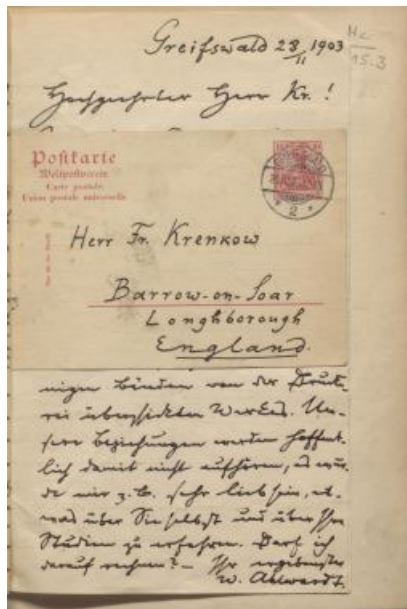 Greifswald 28/II 1903
Hochgeehrter Herr Kr.!
Postkarte
Weltpostverein
Carte postale
Union postale universelle
Herr Fr. Krenkow
Barrow-on-Soar
Loughborough
England.
nigen Bänden von der Drucke-
rei übersickten Werkes. Un-
sere Beziehungen werden hoffent-
lich damit nicht aufhören, es wür-
de mir z.B. sehr lieb sein, et-
was über Sie selbst und über Ihre
Studien zu erfahren. Darf ich
darauf rechnen? – Ihr ergebenster
W. Ahlwardt.
Hc
15.3